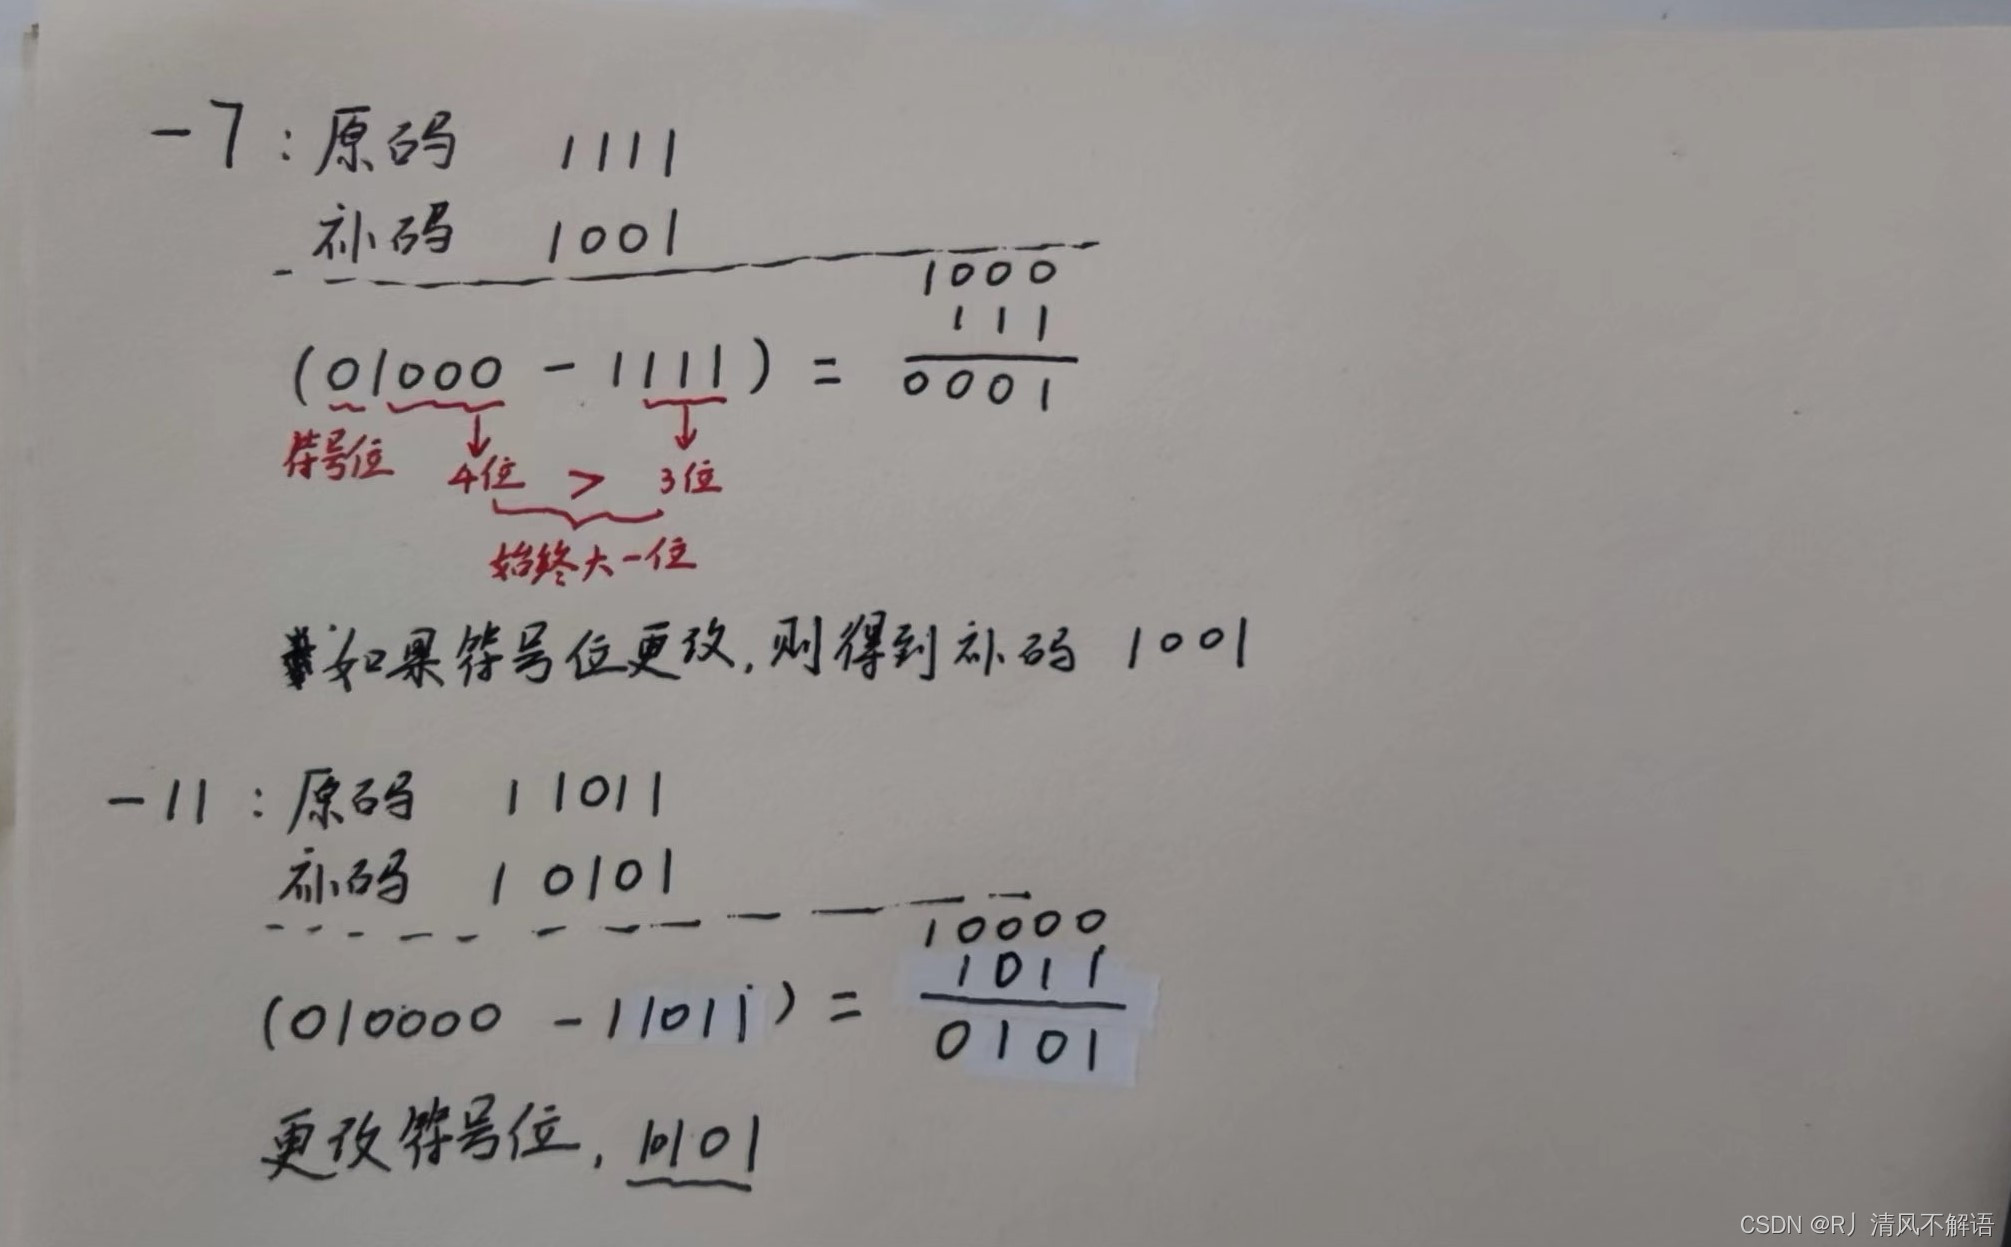 -7：原码 1111
补码 1001
1000
111
(01000 - 1111) = 0001
符号位 4位 > 3位
始终大一位
如果符号位更改，则得到补码 1001
-11：原码 11011
补码 10101
10000
1011
(010000 - 11011) = 0101
更改符号位，10101
CSDN @R丿清风不解语